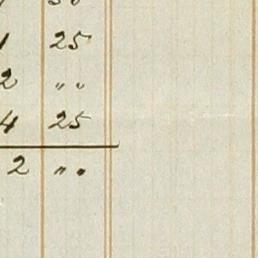 1 25
2 " "
4 25
2 " "